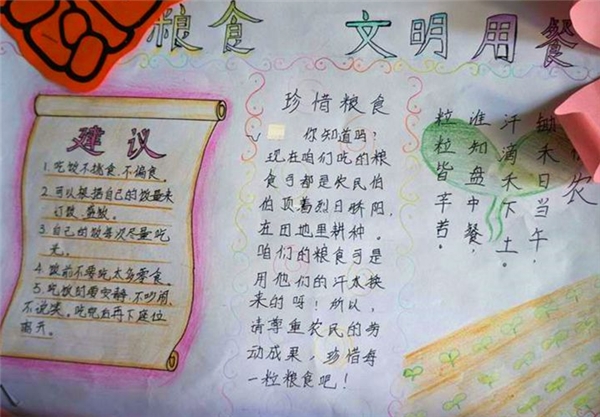 粮食 文明用餐
建议
1.吃饭不挑食,不偏食。
2.可以根据自己的饭量来
订饭、盛饭。
3.自己的饭每次尽量吃
完。
4.饭前不要吃太多零食。
5.吃饭时要安静,不吵闹,
不说笑,吃完后再下座位
离开。
珍惜粮食
你知道吗?
现在咱们吃的粮
食可都是农民伯
伯顶着烈日骄阳,
在田地里耕种。
咱们的粮食可是
用他们的汗水换
来的呀!所以,
请尊重农民的劳
动成果,珍惜每
一粒粮食吧!
农
锄禾日当午,
汗滴禾下土。
谁知盘中餐,
粒粒皆辛苦。